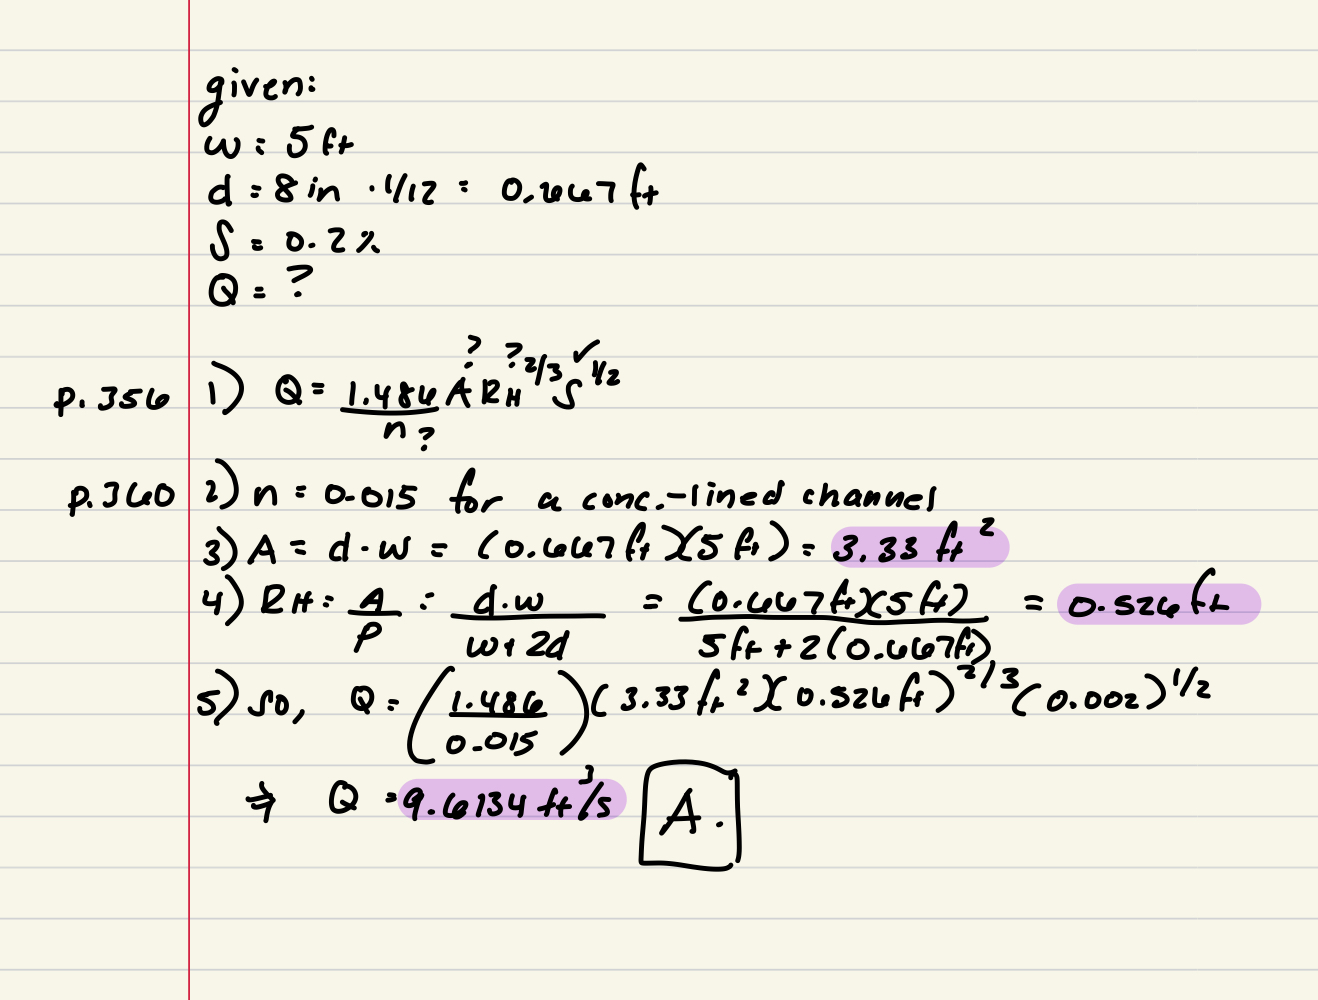 given:
w = 5 ft
d = 8 in · 1/12 = 0.667 ft
S = 0.2 %
Q = ?
p. 356 1) Q = 1.486/n? A? RH?^2/3 S✓^1/2
p. 360 2) n = 0.015 for a conc.-lined channel
3) A = d·w = (0.667 ft)(5 ft) = 3.33 ft²
4) RH = A/P = d·w/w+2d = (0.667 ft)(5 ft)/5 ft + 2(0.667 ft) = 0.526 ft
5) so, Q = (1.486/0.015)(3.33 ft²)(0.526 ft)^2/3 (0.002)^1/2
⇒ Q = 9.6134 ft³/s A.